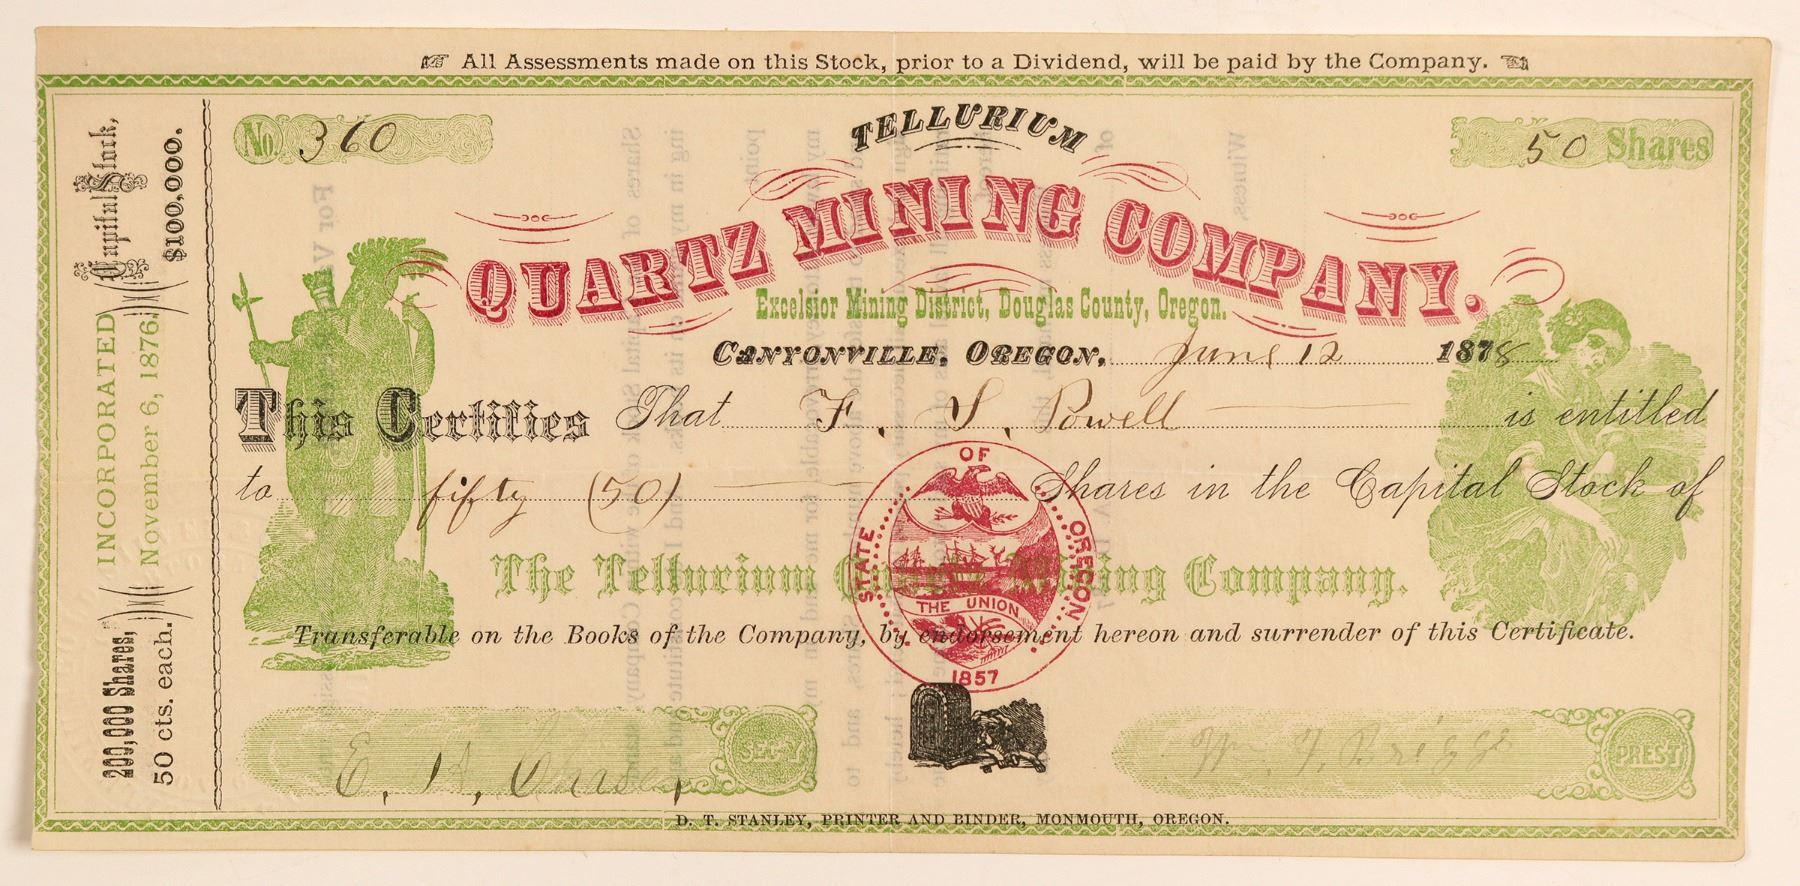 All Assessments made on this Stock, prior to a Dividend, will be paid by the Company.
Capital Stock,
$100,000.
INCORPORATED
November 6, 1876.
200,000 Shares,
50 cts. each.
No. 360
50 Shares
TELLURIUM
QUARTZ MINING COMPANY.
Excelsior Mining District, Douglas County, Oregon.
CANYONVILLE, OREGON, June 12 1878
This Certifies That F. S. Powell is entitled
to fifty (50) Shares in the Capital Stock of
The Tellurium Quartz Mining Company.
Transferable on the Books of the Company, by endorsement hereon and surrender of this Certificate.
STATE OF OREGON
THE UNION
1857
E. A. SEC'Y
Wm. F. PREST
D. T. STANLEY, PRINTER AND BINDER, MONMOUTH, OREGON.